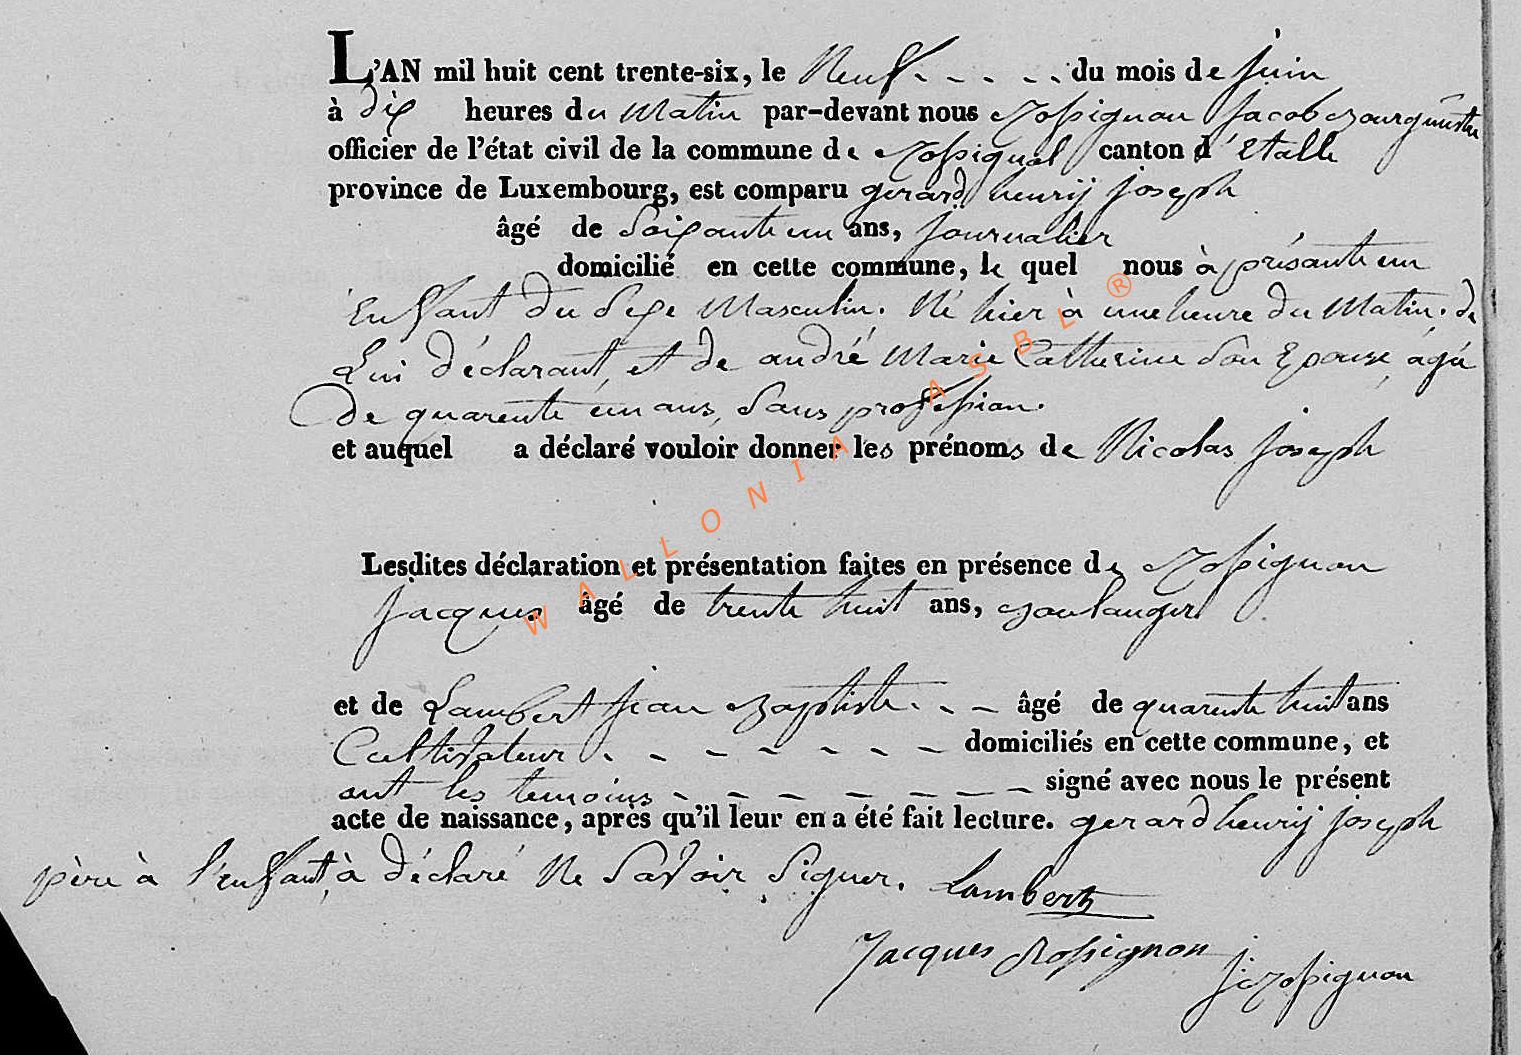 L'AN mil huit cent trente-six, le Neuf - - - - du mois de juin
à dix heures du Matin par-devant nous Rossignon Jacob Bourgmestre
officier de l'état civil de la commune de Rossignol canton d'Etalle
province de Luxembourg, est comparu gerard henrij joseph
âgé de Soixante un ans, journalier
domicilié en cette commune, le quel nous à présante un
Enfant du Sexe Masculin. Né hier à une heure du Matin. de
Lui déclarant, et de andré Marie Catherine Son Epouse, agée
De quarente un ans, Sans profession.
et auquel a déclaré vouloir donner les prénoms de Nicolas joseph
Lesdites déclaration et présentation faites en présence de Rossignon
Jacques âgé de trente huit ans, Boulanger
et de Lambert jean Baptiste - - - âgé de quarente huit ans
Cultivateur - - - - - - - - domiciliés en cette commune, et
ont les temoins - - - - - - - - signé avec nous le présent
acte de naissance, apres qu'il leur en a été fait lecture. gerard henrij joseph
père à l'enfant, à déclaré Ne Savoir Signer. Lambert
Jacques Rossignon J. Rossignon
WALLONIA ASBL ®